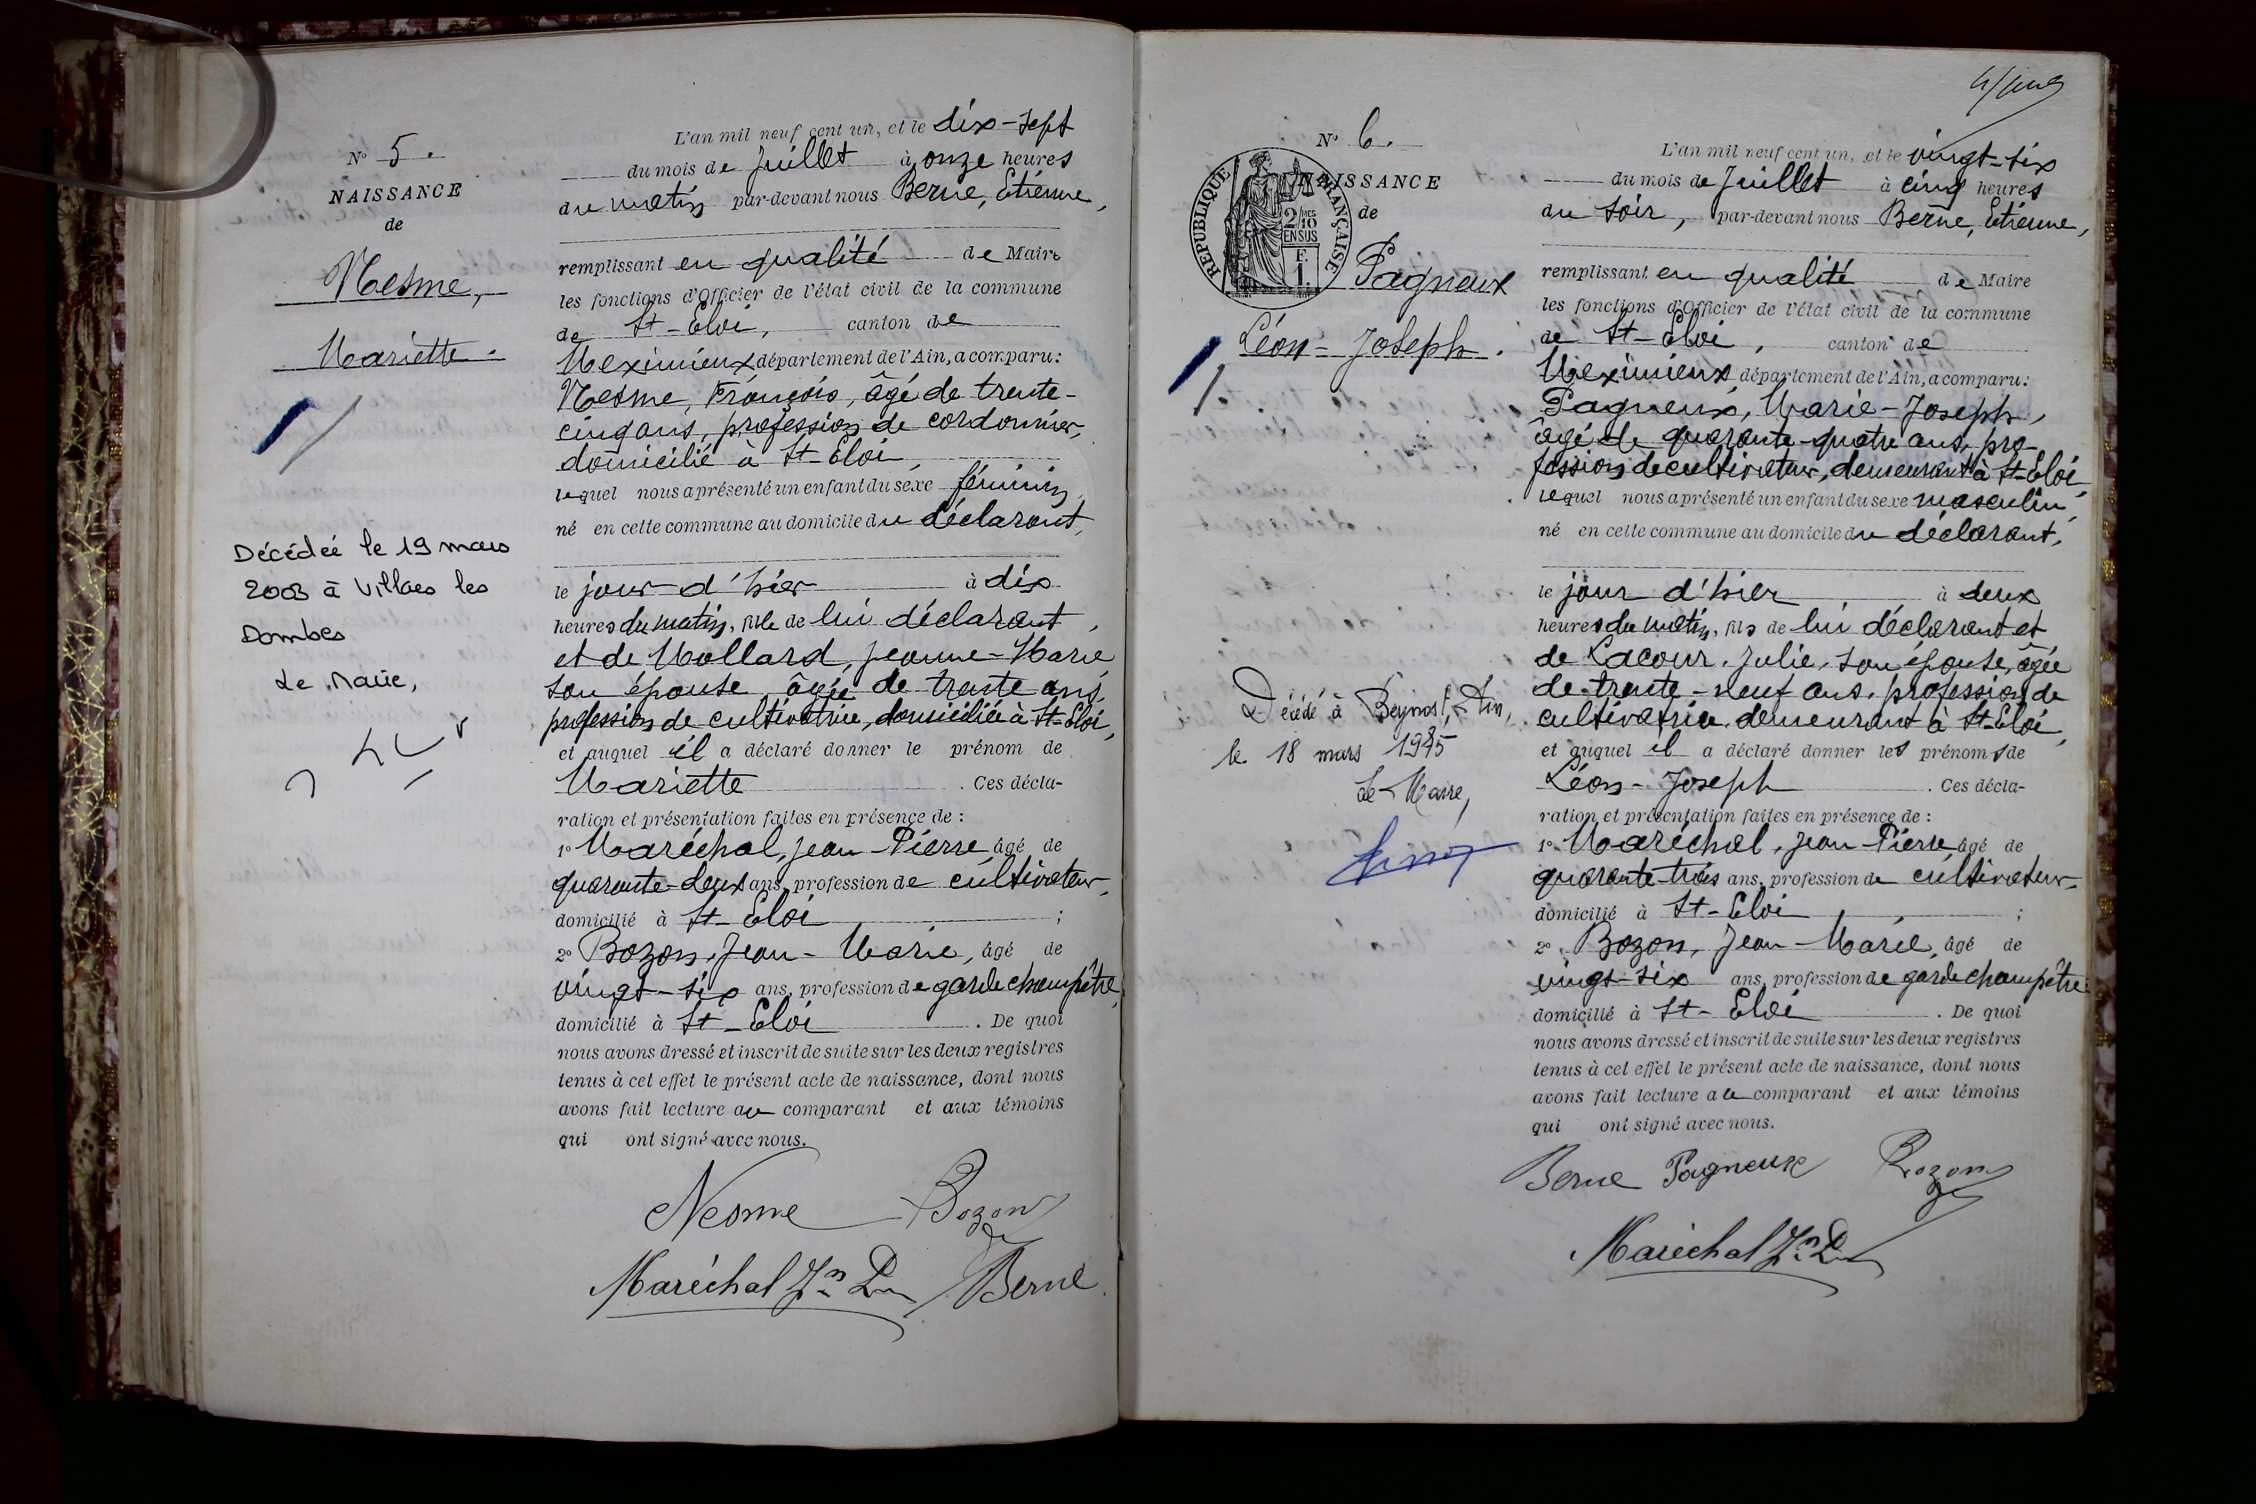 N° 5.
NAISSANCE
de
Nesme,
Mariette.
Décédée le 19 mars
2003 à Villars les
Dombes
Le Maire,
L'an mil neuf cent un, et le dix-sept
du mois de Juillet à onze heures
du matin par-devant nous Berne, Etienne,
remplissant en qualité de Maire
les fonctions d'Officier de l'état civil de la commune
de St-Eloi, canton de
Meximieux département de l'Ain, a comparu:
Nesme, François, âgé de trente-
cinq ans, profession de cordonnier,
domicilié à St-Eloi,
lequel nous a présenté un enfant du sexe féminin,
né en cette commune au domicile du déclarant,
le jour d'hier à dix
heures du matin, fille de lui déclarant,
et de Mollard, Jeanne-Marie
son épouse âgée de trente ans,
profession de cultivatrice, domiciliée à St-Eloi,
et auquel il a déclaré donner le prénom de
Mariette. Ces décla-
ration et présentation faites en présence de :
1° Maréchal, Jean-Pierre âgé de
quarante-deux ans, profession de cultivateur,
domicilié à St-Eloi ;
2° Bozon, Jean-Marie, âgé de
vingt-six ans, profession de garde champêtre,
domicilié à St-Eloi. De quoi
nous avons dressé et inscrit de suite sur les deux registres
tenus à cet effet le présent acte de naissance, dont nous
avons fait lecture au comparant et aux témoins
qui ont signé avec nous.
Nesme Bozon
Maréchal Jn Berne
N° 6.
NAISSANCE
de
RÉPUBLIQUE FRANÇAISE
2/10 MES
EN SUS
F.
1.
Pagneux
Léon-Joseph.
Décédé à Beynost, Ain,
le 18 mars 1985
Le Maire,
L'an mil neuf cent un, et le vingt-six
du mois de Juillet à cinq heures
du soir, par-devant nous Berne, Etienne,
remplissant en qualité de Maire
les fonctions d'Officier de l'état civil de la commune
de St-Eloi, canton de
Meximieux département de l'Ain, a comparu:
Pagneux, Marie-Joseph,
âgé de quarante-quatre ans, pro-
fession de cultivateur, demeurant à St-Eloi,
lequel nous a présenté un enfant du sexe masculin,
né en cette commune au domicile du déclarant,
le jour d'hier à deux
heures du matin, fils de lui déclarant et
de Lacour, Julie, son épouse, âgée
de trente-neuf ans, profession de
cultivatrice demeurant à St-Eloi,
et auquel il a déclaré donner les prénoms de
Léon-Joseph. Ces décla-
ration et présentation faites en présence de :
1° Maréchal, Jean-Pierre âgé de
quarante-trois ans, profession de cultivateur,
domicilié à St-Eloi ;
2° Bozon, Jean-Marie, âgé de
vingt-six ans, profession de garde champêtre
domicilié à St-Eloi. De quoi
nous avons dressé et inscrit de suite sur les deux registres
tenus à cet effet le présent acte de naissance, dont nous
avons fait lecture au comparant et aux témoins
qui ont signé avec nous.
Berne Pagneux Bozon
Maréchal Jn